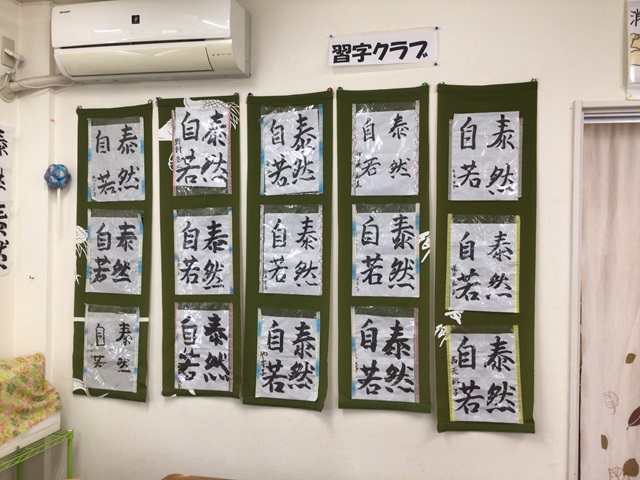 習字クラブ
泰然
自若
泰然
自若
泰然
自若
泰然
自若
泰然
自若
泰然
自若
泰然
自若
泰然
自若
泰然
自若
泰然
自若
泰然
自若
泰然
自若
泰然
自若
泰然
自若
泰然
自若
消